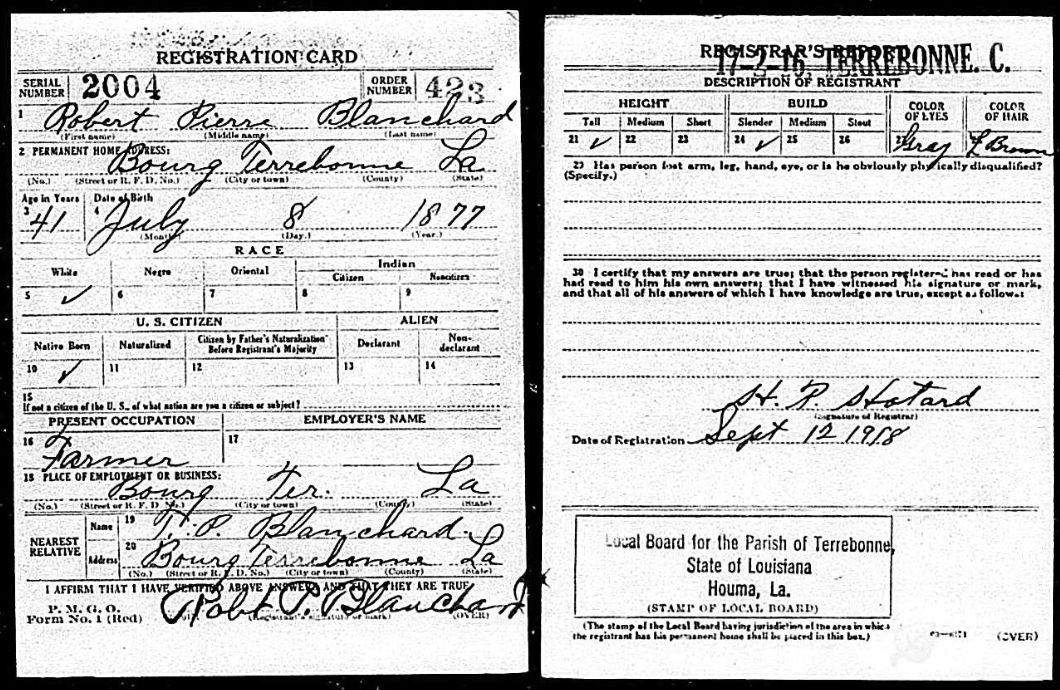 REGISTRATION CARD
SERIAL NUMBER 2004 ORDER NUMBER 423
1 Robert Pierre Blanchard
(First name) (Middle name) (Last name)
2 PERMANENT HOME ADDRESS:
Bourg Terrebonne La
(No.) (Street or R. F. D. No.) (City or town) (County) (State)
Age in Years Date of Birth
3 41 4 July 8 1877
(Month) (Day.) (Year.)
RACE
White Negro Oriental Indian
Citizen Noncitizen
5 ✓ 6 7 8 9
U. S. CITIZEN ALIEN
Native Born Naturalized Citizen by Father's Naturalization Before Registrant's Majority Declarant Non-declarant
10 ✓ 11 12 13 14
15
If not a citizen of the U. S., of what nation are you a citizen or subject?
PRESENT OCCUPATION EMPLOYER'S NAME
16 Farmer 17
18 PLACE OF EMPLOYMENT OR BUSINESS:
Bourg Ter. La
(No.) (Street or R. F. D. No.) (City or town) (County) (State)
NEAREST RELATIVE
Name 19 T. P. Blanchard
Address 20 Bourg Terrebonne La
(No.) (Street or R. F. D. No.) (City or town) (County) (State)
I AFFIRM THAT I HAVE VERIFIED ABOVE ANSWERS AND THAT THEY ARE TRUE
P. M. G. O.
Form No. 1 (Red) Robt P. Blanchard
(Registrant's signature or mark) (OVER)
REGISTRAR'S REPORT
17-2-16, TERREBONNE. C.
DESCRIPTION OF REGISTRANT
HEIGHT BUILD COLOR OF EYES COLOR OF HAIR
Tall Medium Short Slender Medium Stout
21 ✓ 22 23 24 ✓ 25 26 Gray L Brown
29 Has person lost arm, leg, hand, eye, or is he obviously physically disqualified?
(Specify.)
30 I certify that my answers are true; that the person registered has read or has
had read to him his own answers; that I have witnessed his signature or mark,
and that all of his answers of which I have knowledge are true, except as follows:
H. P. Hotard
(Signature of Registrar)
Date of Registration Sept 12 1918
Local Board for the Parish of Terrebonne,
State of Louisiana
Houma, La.
(STAMP OF LOCAL BOARD)
(The stamp of the Local Board having jurisdiction of the area in which
the registrant has his permanent home shall be placed in this box.)
(OVER)